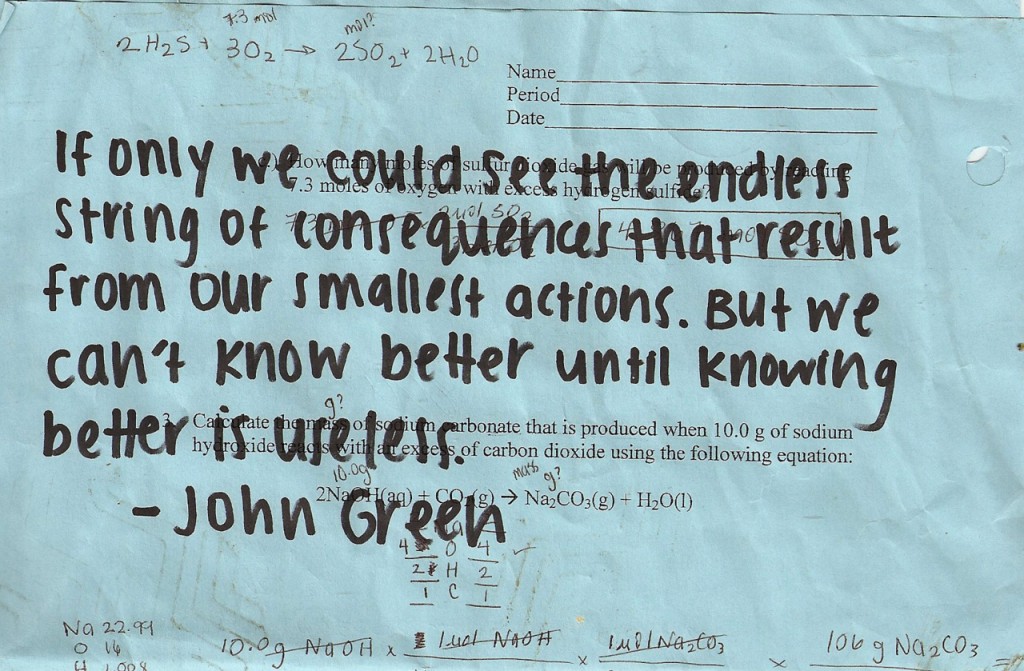 7.3 mol mol?
2 H2S + 3O2 → 2SO2 + 2H2O
Name
Period
Date
If only we could see the endless
c.) How many moles of sulfur dioxide gas will be produced by reacting
7.3 moles of oxygen with excess hydrogen sulfide?
string of consequences that result
2 mol SO2
from our smallest actions. But we
can't know better until knowing
better is useless.
g?
3. Calculate the mass of sodium carbonate that is produced when 10.0 g of sodium
hydroxide reacts with an excess of carbon dioxide using the following equation:
10.0g mass g?
2NaOH(aq) + CO2(g) → Na2CO3(g) + H2O(l)
- John Green
4 O 4 ✓
2 H 2
1 C 1
Na 22.99
O 16
H 1.008
10.0g NaOH x 1 mol NaOH x 1 mol Na2CO3 x 106 g Na2CO3 =